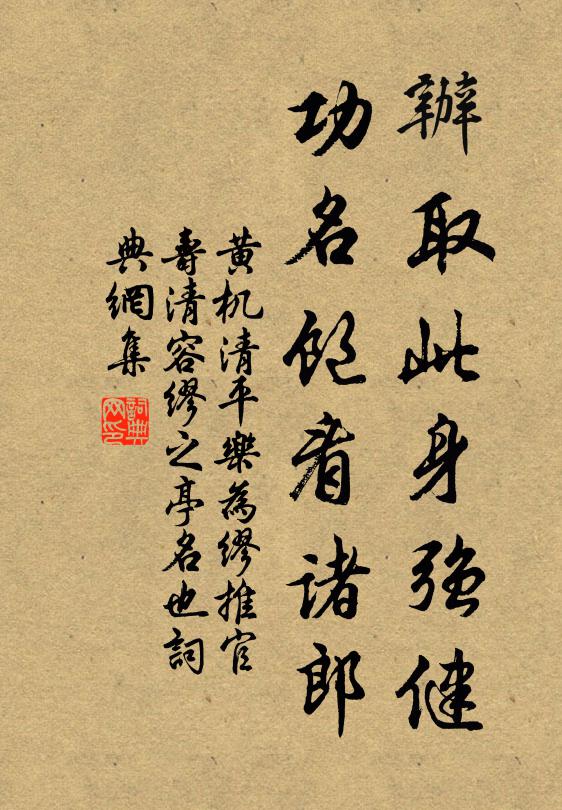 辦取此身強健
功名飽看諸郎
黃机清平樂為繆推官
壽清容繆之亭名也詞
典網集
詞典網印